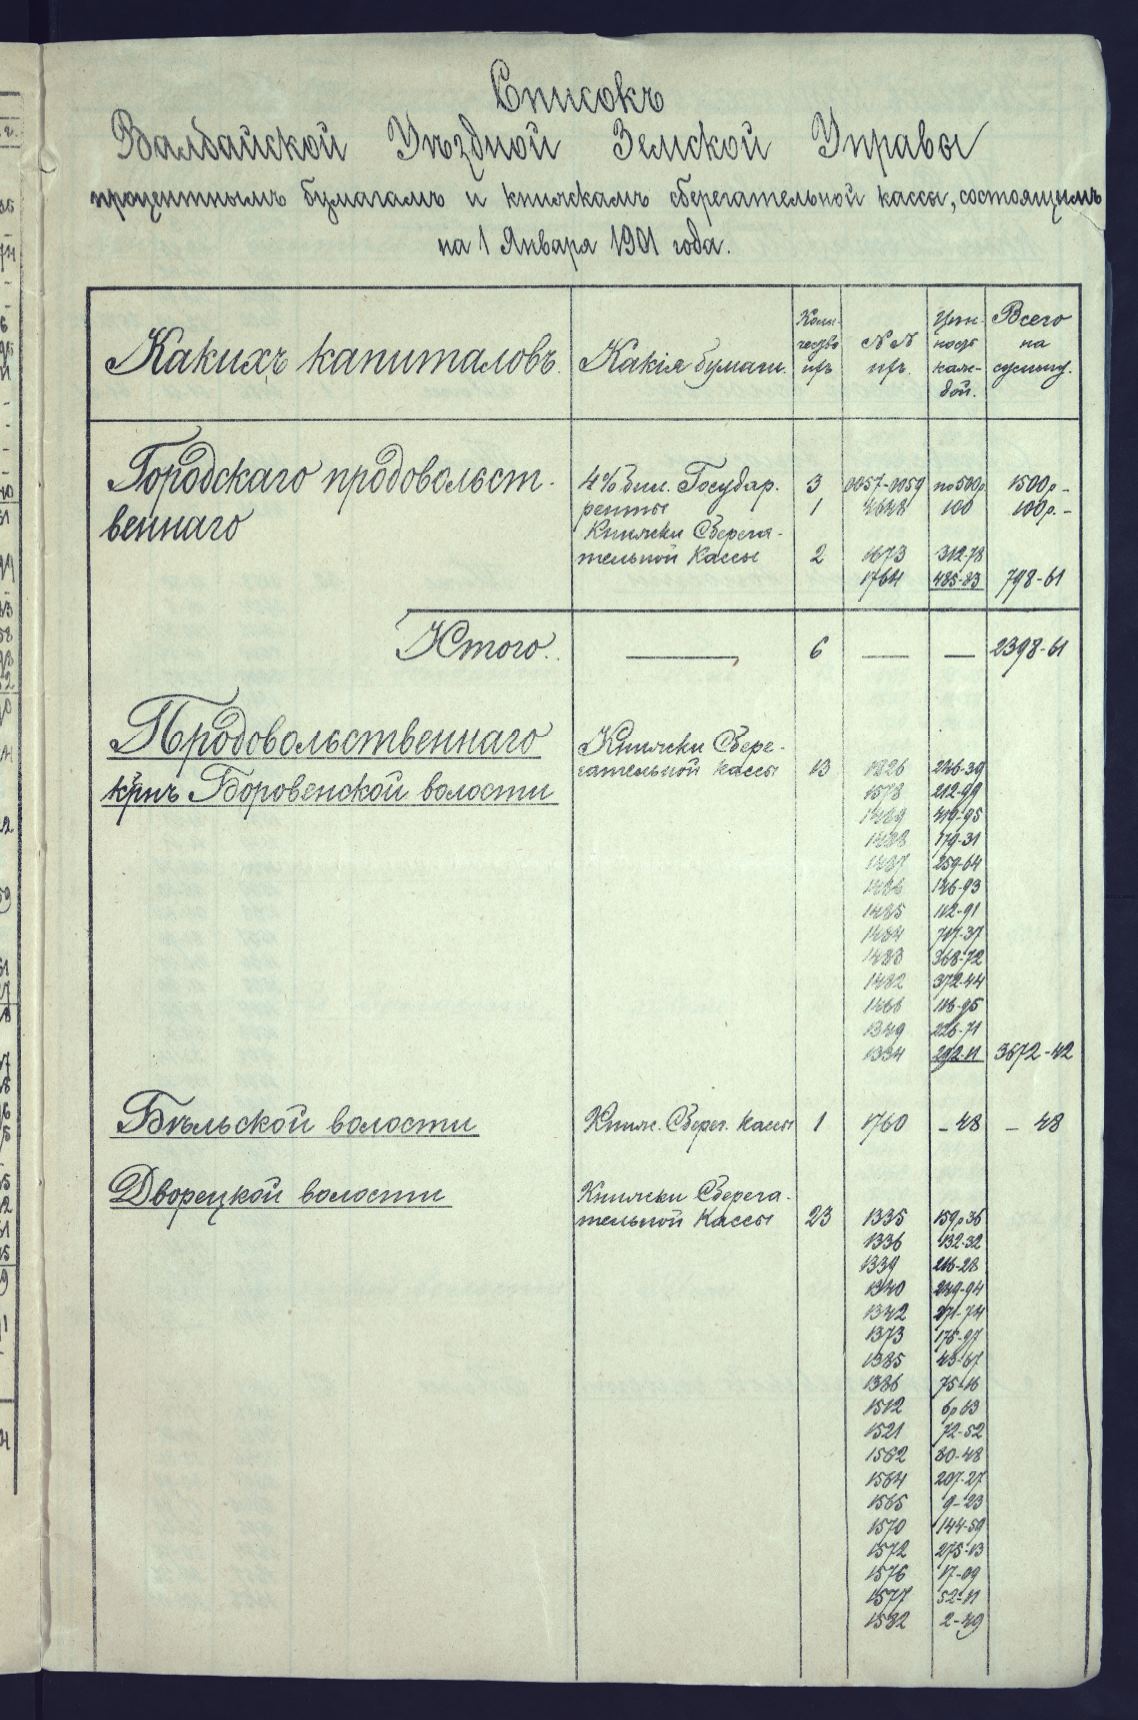 Списокъ
Валдайской Уѣздной Земской Управы
процентнымъ бумагамъ и книжкамъ сберегательной кассы, состоящимъ
на 1 Января 1901 года.
Какихъ капиталовъ. Какія бумаги. Коли-чество ихъ №№ ихъ. Цѣн-ность каж-дой. Всего на сумму.
Городскаго продовольст- 4% бил. Государ. 3 0057-0059 по 500р. 1500р -
ренты 1 4648 100 100р. -
веннаго Книжки Сберега-
тельной Кассы 2 1673 312-78
1764 485-83 798-61
Итого. 6 2398-61
Продовольственнаго Книжки Сбере-
гательной кассы 13 1826 246-39
крнъ Боровенской волости 1578 212-99
1489 419-95
1488 179-31
1487 259-64
1486 146-93
1485 112-91
1484 717-37
1483 368-72
1482 372-44
1466 116-95
1349 226-71
1334 292-11 3672-42
Бѣльской волости Книж. Сберег. Кассы 1 1760 - 48 - 48
Дворецкой волости Книжки Сберега-
тельной Кассы 23 1335 159р36
1336 132-32
1339 216-28
1340 249-94
1342 271-74
1373 175-97
1385 43-67
1386 75-16
1512 6р63
1521 72-52
1562 80-48
1564 207-27
1565 9-23
1570 144-59
1572 275-13
1576 17-09
1577 52-11
1582 2-49